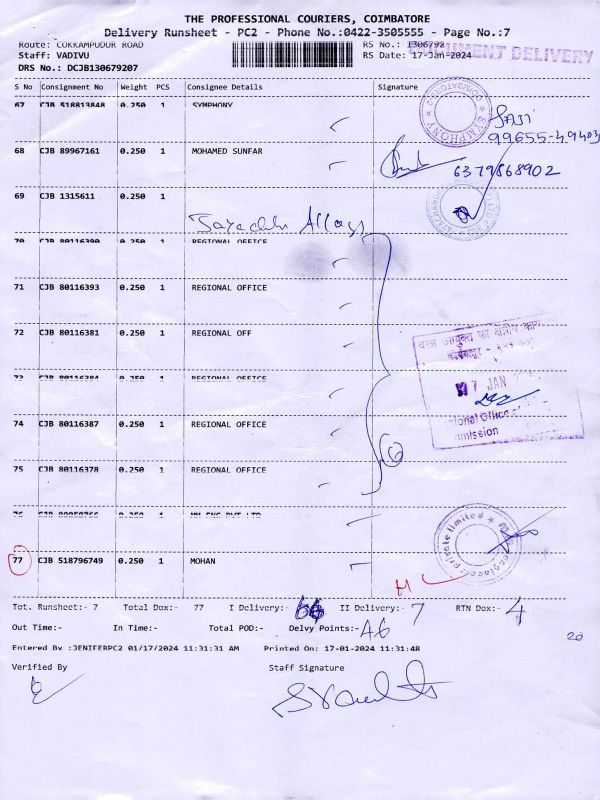 THE PROFESSIONAL COURIERS, COIMBATORE
Delivery Runsheet - PC2 - Phone No.:0422-3505555 - Page No.:7
Route: COKKAMPUDUR ROAD
RS No.: 1306792
DOCUMENT DELIVERY
Staff: VADIVU
RS Date: 17-Jan-2024
DRS No.: DCJB130679207
S No Consignment No Weight PCS Consignee Details Signature
67 CJB 518813848 0.250 1 SYMPHONY
SYMPHONY
COIMBATORE-2
99655-49403
68 CJB 89967161 0.250 1 MOHAMED SUNFAR
6379868902
69 CJB 1315611 0.250 1
70 CJB 80116390 0.250 1 REGIONAL OFFICE
71 CJB 80116393 0.250 1 REGIONAL OFFICE
72 CJB 80116381 0.250 1 REGIONAL OFF
17 JAN
73 CJB 80116384 0.250 1 REGIONAL OFFICE
74 CJB 80116387 0.250 1 REGIONAL OFFICE
6
75 CJB 80116378 0.250 1 REGIONAL OFFICE
76 1 MM ENG PVT LTD
private limited
77 CJB 518796749 0.250 1 MOHAN
Tot. Runsheet:- 7 Total Dox:- 77 I Delivery:- 66 II Delivery:- 7 RTN Dox:- 4
Out Time:- In Time:- Total POD:- Delvy Points:- 46
20
Entered By :JENIFERPC2 01/17/2024 11:31:31 AM Printed On: 17-01-2024 11:31:48
Verified By Staff Signature